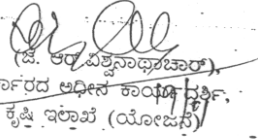 (ಜಿ. ಆರ್.ವಿಶ್ವನಾಥಾಚಾರ್),
ರ್ಕಾರದ ಅಧೀನ ಕಾರ್ಯದರ್ಶಿ,
ಕೃಷಿ ಇಲಾಖೆ (ಯೋಜನೆ)